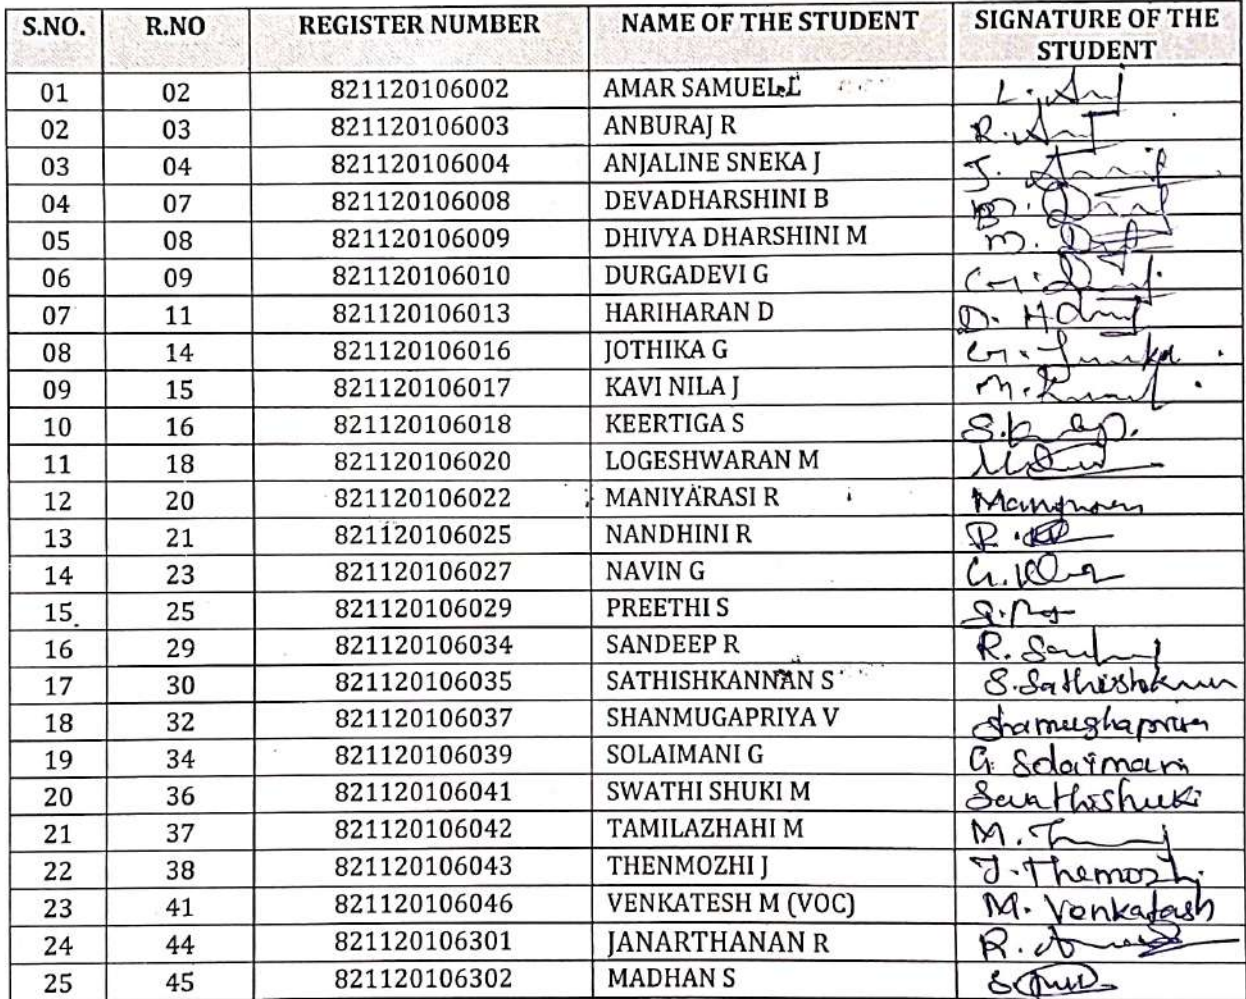 S.NO. R.NO REGISTER NUMBER NAME OF THE STUDENT SIGNATURE OF THE STUDENT
01 02 821120106002 AMAR SAMUEL.L
02 03 821120106003 ANBURAJ R
03 04 821120106004 ANJALINE SNEKA J
04 07 821120106008 DEVADHARSHINI B
05 08 821120106009 DHIVYA DHARSHINI M
06 09 821120106010 DURGADEVI G
07 11 821120106013 HARIHARAN D
08 14 821120106016 JOTHIKA G
09 15 821120106017 KAVI NILA J
10 16 821120106018 KEERTIGA S
11 18 821120106020 LOGESHWARAN M
12 20 821120106022 MANIYARASI R
13 21 821120106025 NANDHINI R
14 23 821120106027 NAVIN G
15 25 821120106029 PREETHI S
16 29 821120106034 SANDEEP R
17 30 821120106035 SATHISHKANNAN S
18 32 821120106037 SHANMUGAPRIYA V
19 34 821120106039 SOLAIMANI G G. Solaimani
20 36 821120106041 SWATHI SHUKI M Swathishuki
21 37 821120106042 TAMILAZHAHI M
22 38 821120106043 THENMOZHI J
23 41 821120106046 VENKATESH M (VOC) M. Venkatash
24 44 821120106301 JANARTHANAN R
25 45 821120106302 MADHAN S